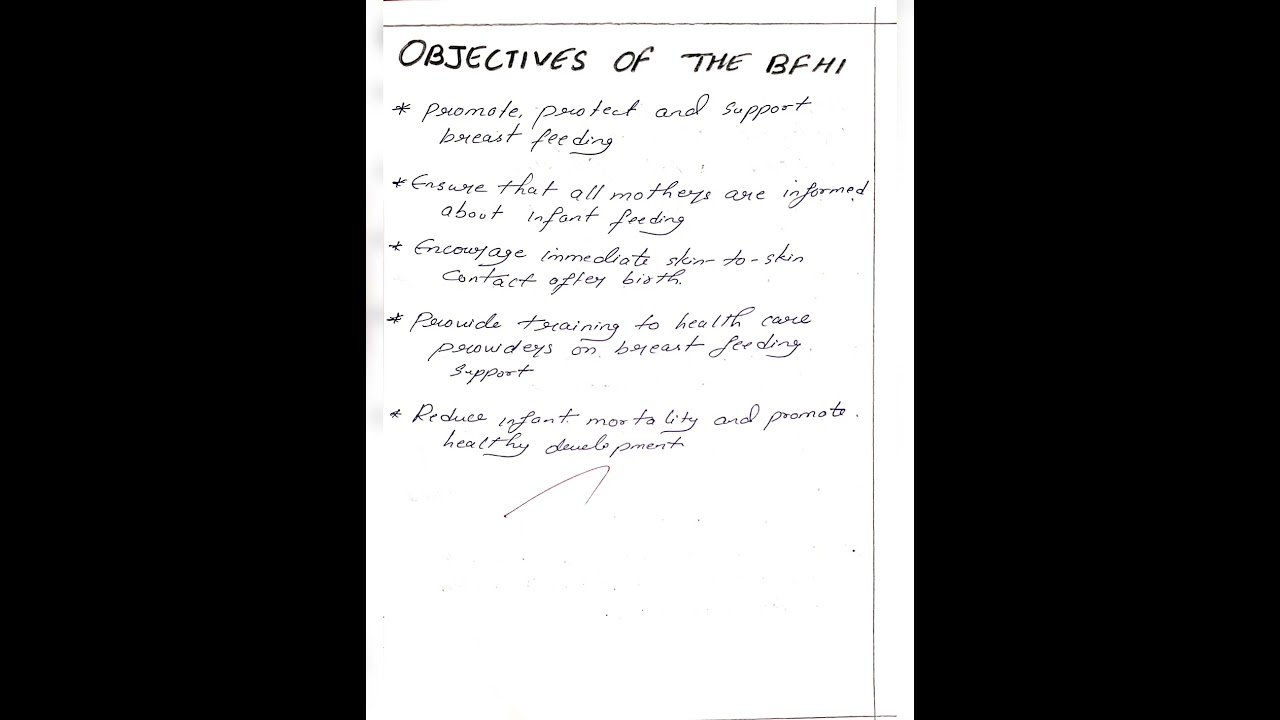 OBJECTIVES OF THE BFHI
* Promote, protect and support
breast feeding
* Ensure that all mothers are informed
about infant feeding
* Encourage immediate skin-to-skin
Contact after birth.
* Provide training to health care
providers on breast feeding.
support
* Reduce infant mortality and promote.
healthy development